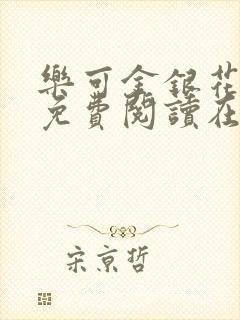 樂可金銀花
免費閱讀在
宋京哲